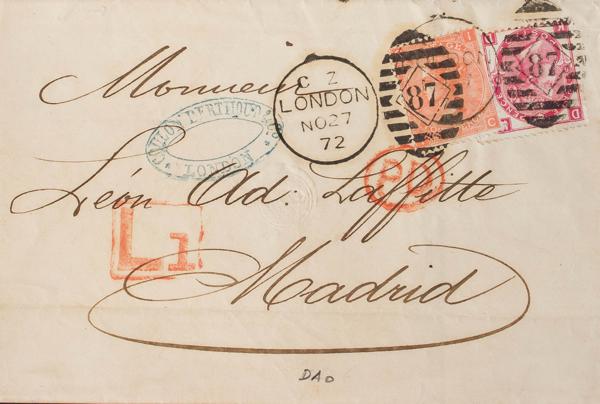 Monsieur
Léon Ad. Laffitte
Madrid
C Z
LONDON
NO 27
72
LONDON
87
87
PD
L1
DAO